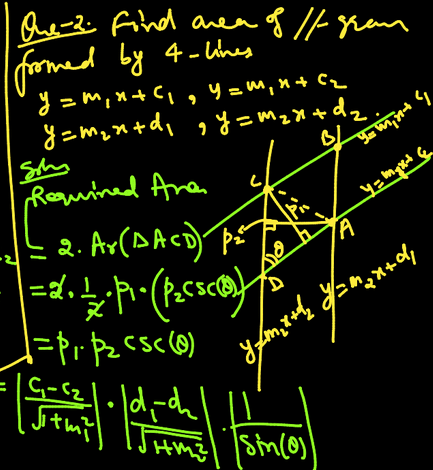 Que-2. Find area of //gram
formed by 4-lines
y = m₁x + c₁ , y = m₁x + c₂
y = m₂x + d₁ , y = m₂x + d₂
Soln
Required Area
= 2. Ar(ΔACD)
= 2 · 1/2 · p₁ · (p₂ csc(θ))
= p₁ · p₂ csc(θ)
= |c₁-c₂ / √1+m₁²| · |d₁-d₂ / √1+m₂²| · |1 / sin(θ)|
B
y = m₁x + c₁
C
y = m₁x + c₂
p₁
p₂
A
θ
D
y = m₂x + d₂
y = m₂x + d₁